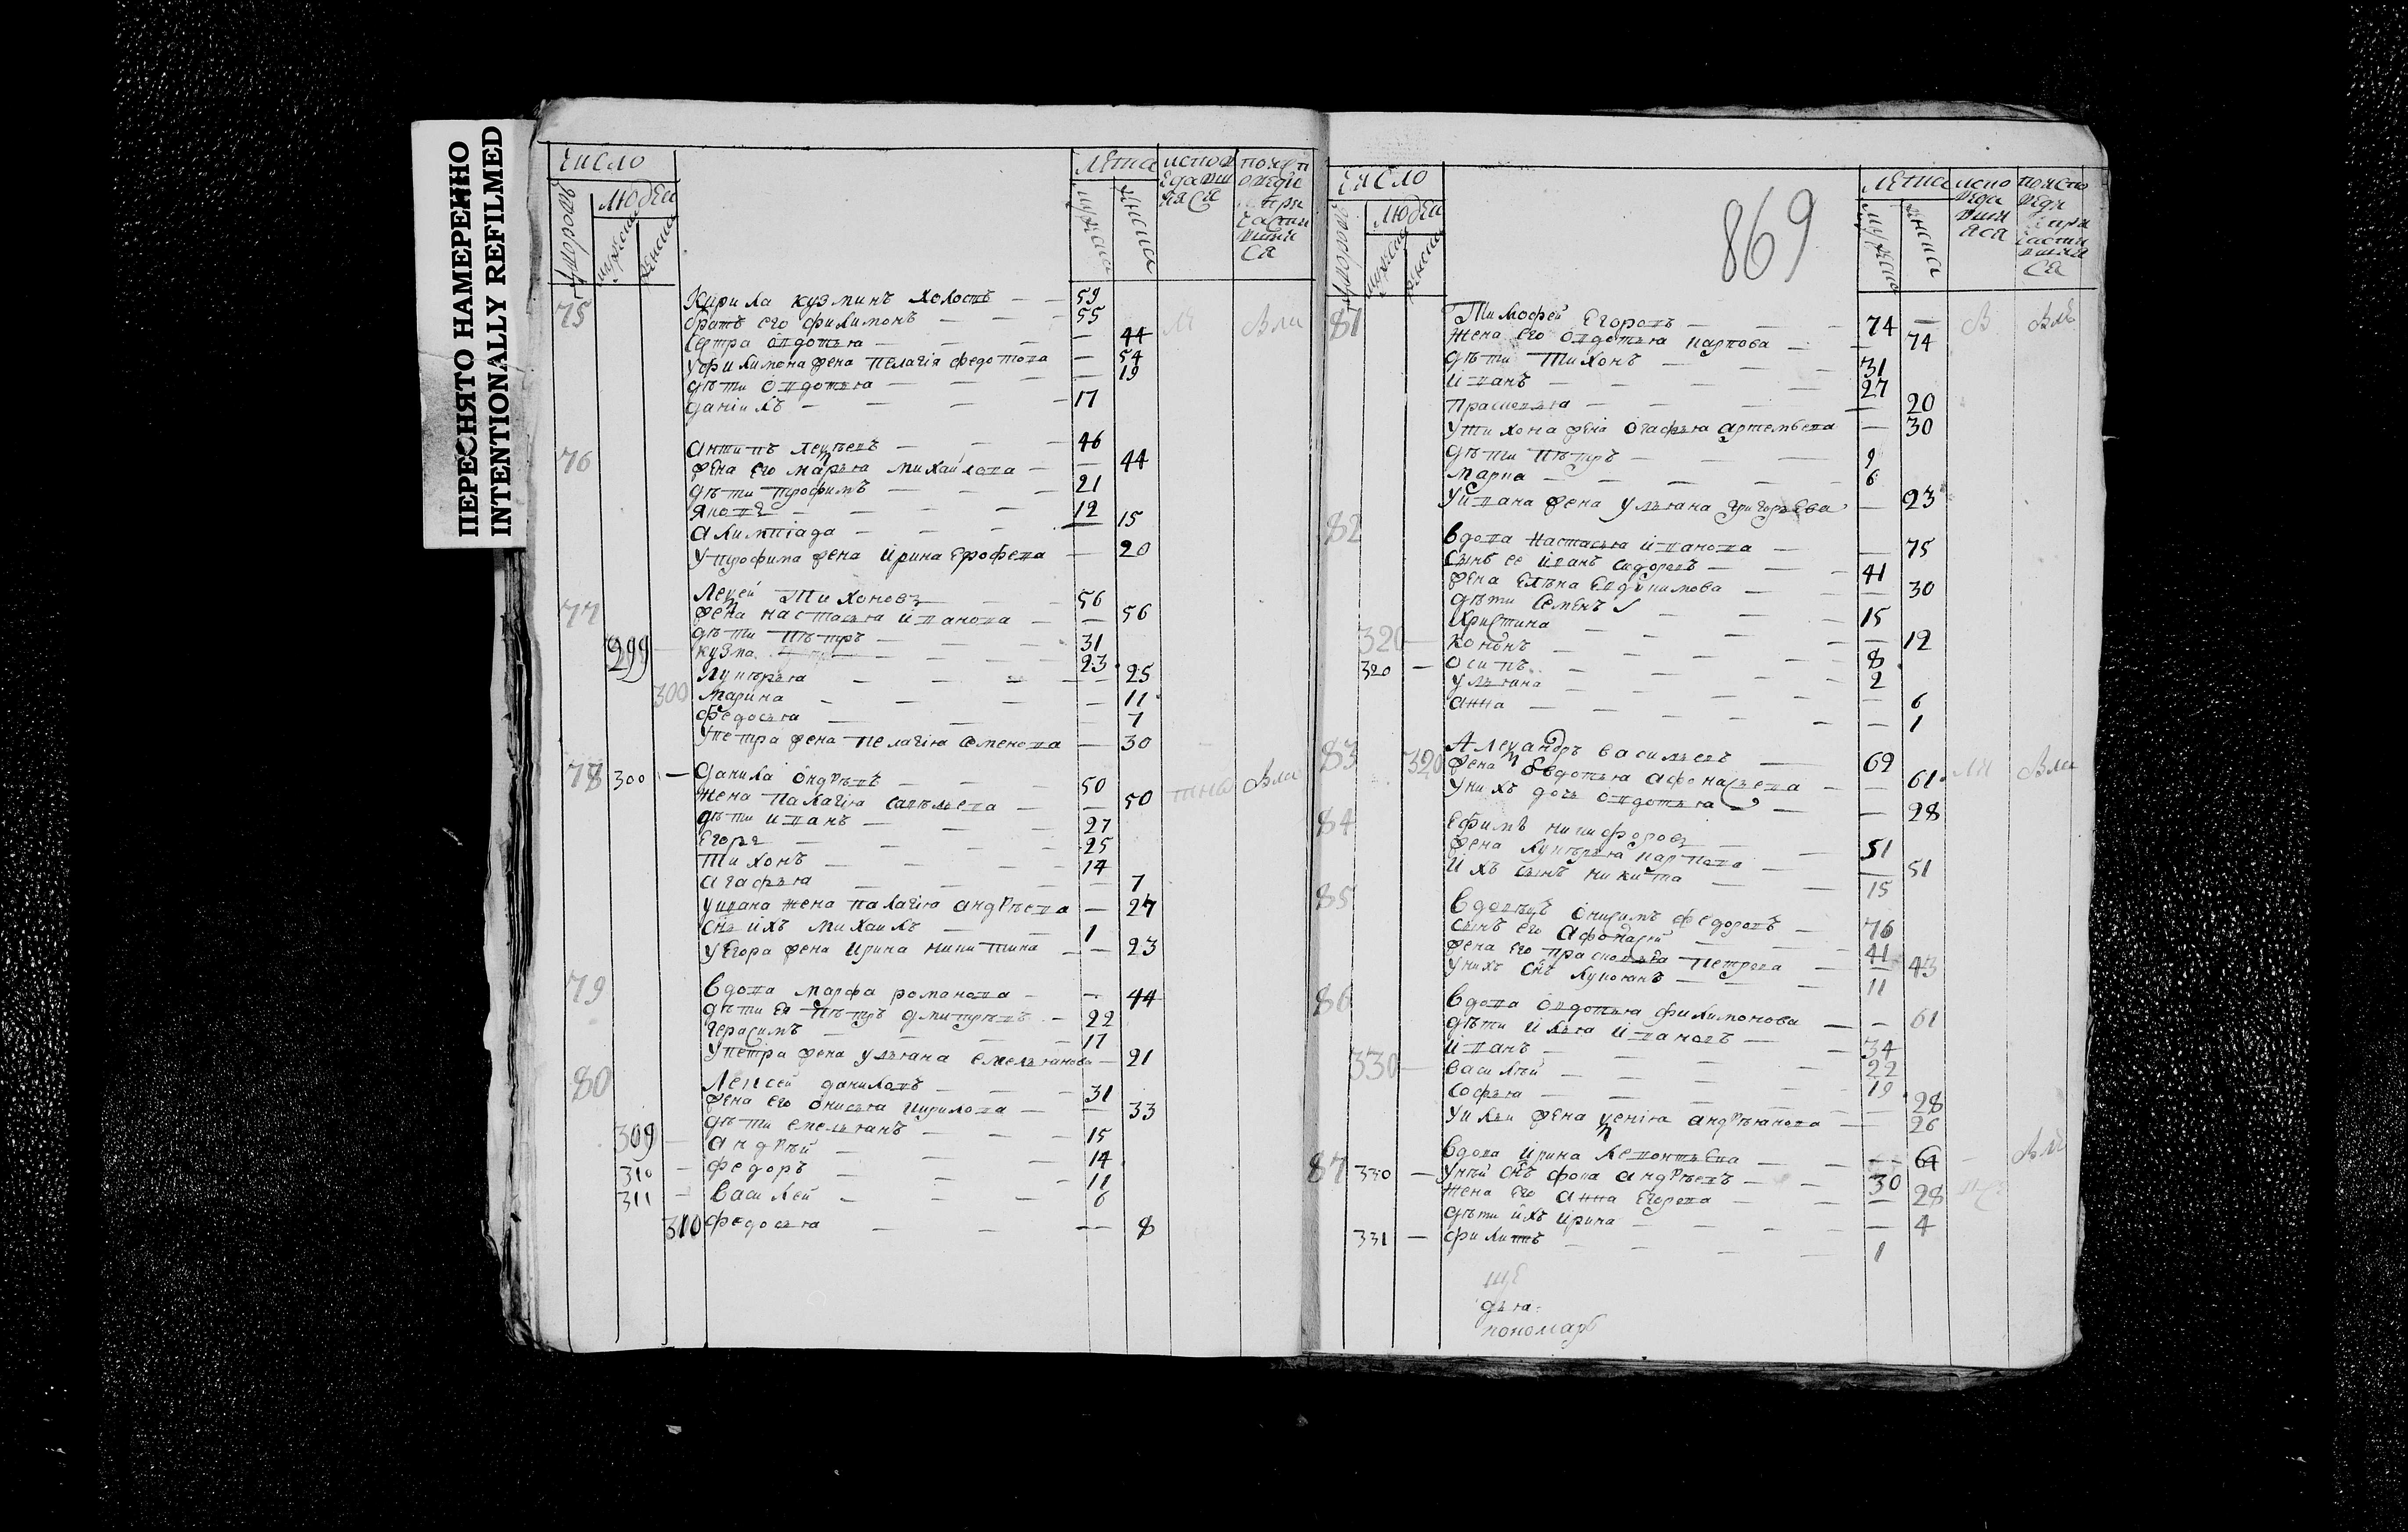 ПЕРЕСНЯТО НАМЕРЕННО
INTENTIONALLY REFILMED
число
людей
лета
испов
едавши
яся
75
Кирила кузминъ холостъ — — 59
братъ его филимонъ — — — 55
сестра овдотья — — — — 44
у филимона жена пелагiя федотова — 54
дѣти овдотья — — — — 19
данiилъ — — — — 17
76
антипъ — — 46
жена его марья михайлова — — 44
дѣти трофимъ — — — 21
яковъ — — — — 12
алимпiада — — — — 15
у трофима жена ирина ерофеева — 20
77
Лексей Тихоновъ — — 56
жена настасья иванова — — 56
дѣти пѣтръ — — — 31
299 — кузма — — — 23
лукерья — — — — 25
300 марина — — — — 11
федосья — — — 7
у петра жена пелагiя семенова — 30
78 300 — данила ондрѣевъ — — 50
жена палагiя савельева — — 50
Вли
дѣти иванъ — — — 27
егоръ — — — — 25
тихонъ — — — — 14
агафья — — — — 7
у ивана жена палагiя андрѣева — 27
снъ ихъ михаилъ — — 1
у егора жена ирина никитина — — 23
79
вдова марфа романова — — 44
дѣти ея пѣтръ дмитрѣевъ — 22
герасимъ — — — — 17
у петра жена ульяна емельянова — 21
80
Лексей даниловъ — — — 31
жена его онисья кирилова — — 33
дѣти емельянъ — — — 15
309 — андрѣй — — — 14
310 — федоръ — — — 11
311 — василей — — — 6
310 федосья — — — — 8
число
людей
869
лета
испо
веди
вши
яся
81
Тимофей Егоровъ — — — 74 —
жена его овдотья карпова — — 74
дѣти тихонъ — — — 31
иванъ — — — — 27
прасковья — — — — 20
у тихона жена огафья артемьева — 30
дѣти пѣтръ — — — 9
мария — — — — 6
у ивана жена ульяна григорьева — 23
82
вдова настасья иванова — — 75
сынъ ее иванъ сидоровъ — — 41
жена елена евдокимова — — 30
дѣти семенъ — — 15
христина — — — — 12
320 — кононъ — — — 8
320 — осипъ — — — 2
ульяна — — — — 6
анна — — — — 1
83
320 Александръ васильевъ — 62
жена овдотья афонасьева — — 61
Вли
у нихъ дочь овдотья — — 28
84
ефимъ никифоровъ — — 51
жена лукерья карпова — — 51
ихъ сынъ никита — — 15
85
вдовецъ онисимъ федоровъ — 76
сынъ его афонасiй — — 41
жена его прасковья петрова — — 43
у нихъ снъ лукоянъ — — 11
86
вдова овдотья филимонова — — 61
дѣти илья ивановъ — — 34
330 — иванъ — — — 22
василiй — — — — 19
софья — — — — 28
у ильи жена ксенiя андрѣянова — 26
87
вдова ирина леонтьева — — 64
330 — у ней снъ фока андрѣевъ — — 30
жена его анна егорова — — 28
дѣти ихъ ирина — — — 4
331 — филипъ — — — 1
пономарь